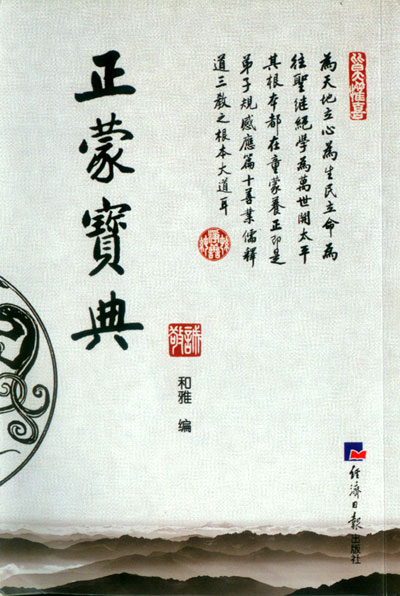 正蒙寶典
皆大歡喜
為天地立心為生民立命為
往聖继絕學為萬世開太平
其根本都在童蒙養正即是
弟子規感應篇十善業儒釋
道三教之根本大道耳
誠敬
和雅 编
經濟日報出版社